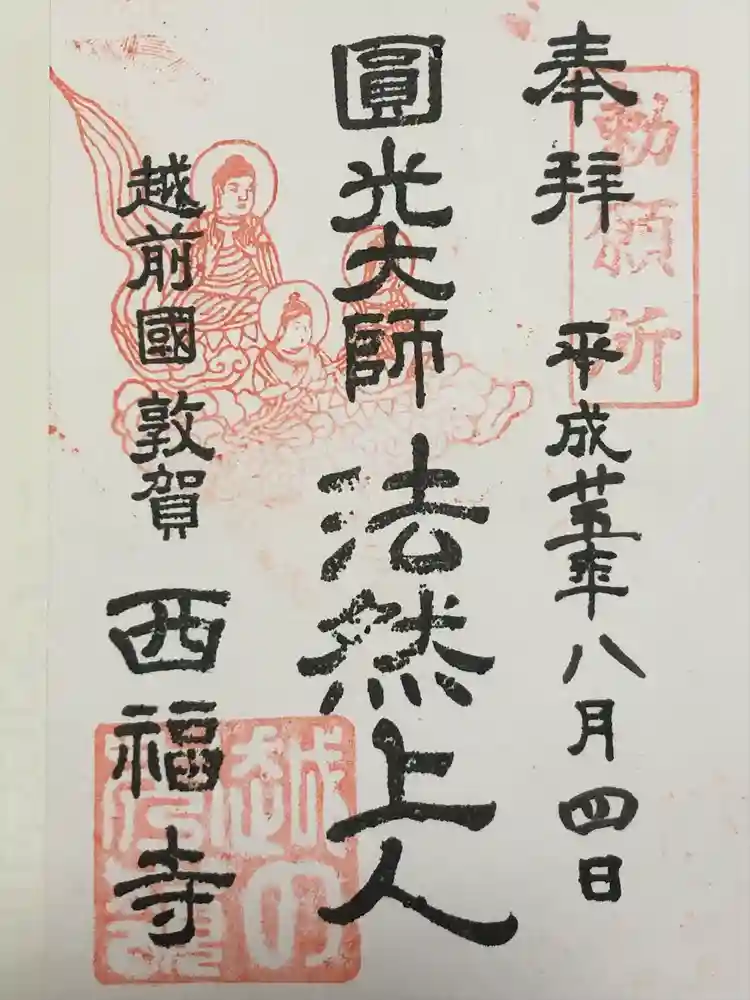 奉拝 平成廿五年八月四日
勅願所
圓光大師 法然上人
越前國敦賀 西福寺
越の